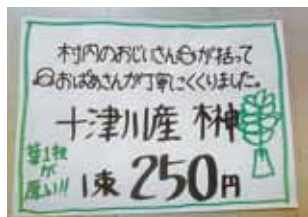 村内のおじいさんが括って
おばあさんが丁寧にくくりました。
十津川産 榊
葉1枚が厚い!!
1束 250円